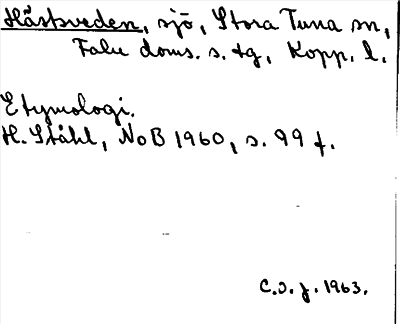 Hästsveden, sjö, Stora Tuna sn,
Falu doms. s. tg, Kopp. l.
Etymologi.
H. Ståhl, NoB 1960, s. 99 f.
C.I.J. 1963.